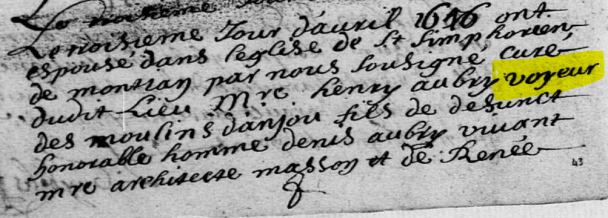 Le troisieme Jour
Le troisieme Jour d'avril 1646 ont
espousé dans leglise de St Simphorien
de montjan par nous soubsigné, Curé
dudit Lieu Mre. henry aubry voyeur
des moulins danjou fils de defunct
honorable homme denis aubry vivant
mre architecte masson et de Renée
43